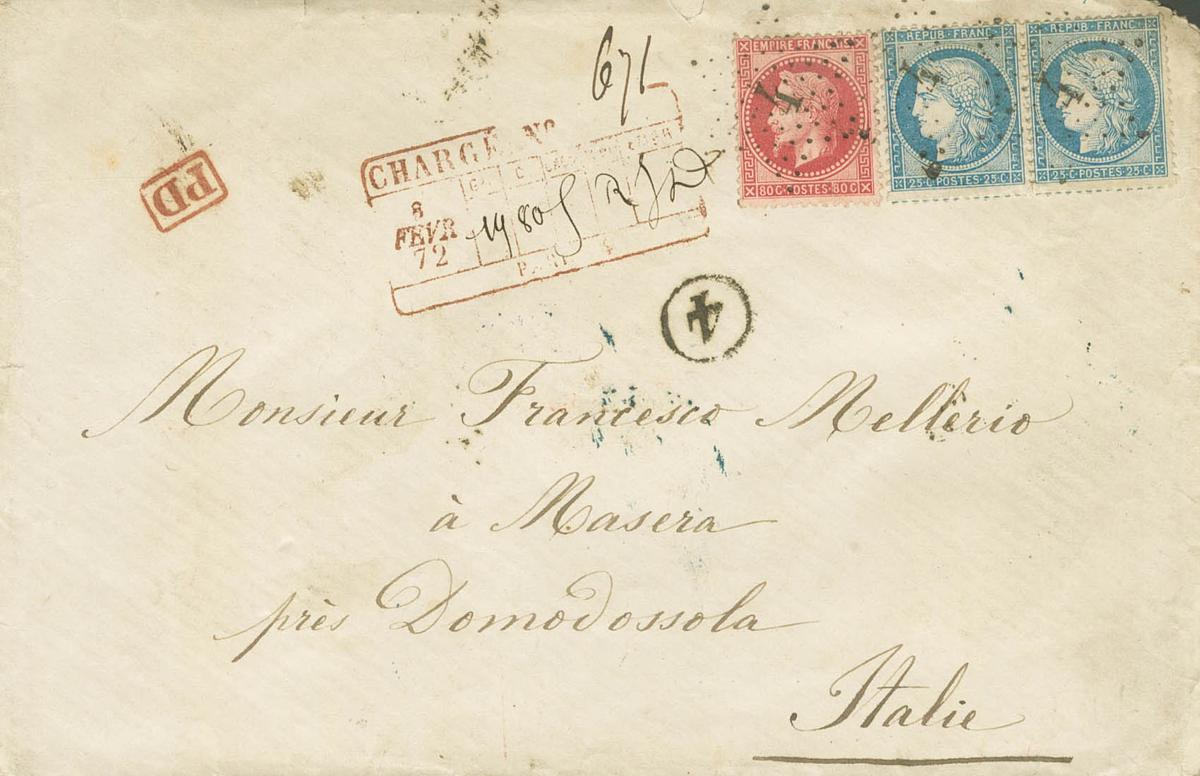 671
EMPIRE FRANÇAIS
80 C POSTES 80 C
REPUB FRANC
25 C POSTES 25 C
REPUB FRANC
25 C POSTES 25 C
4
4
4
PD
CHARGÉ No
8
FEVR
72
4
Monsieur Francesco Mellerio
à Masera
près Domodossola
Italie